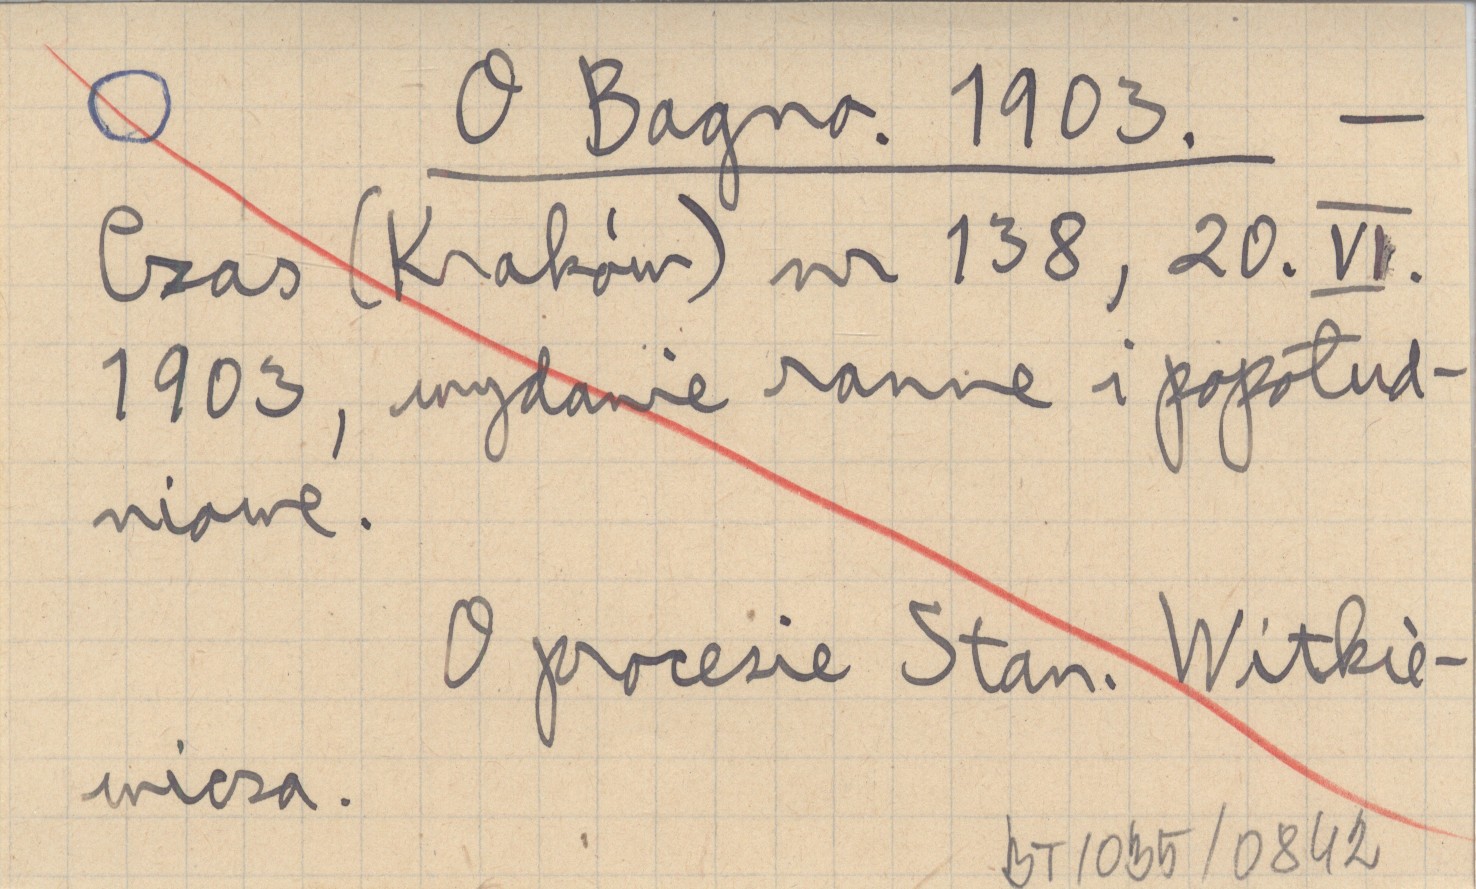 O Bagno. 1903. —
Czas (Kraków) nr 138, 20. VI.
1903, wydanie ranne i popołud-
niowe.
O procesie Stan. Witkie-
wicza.
BT1035/0842